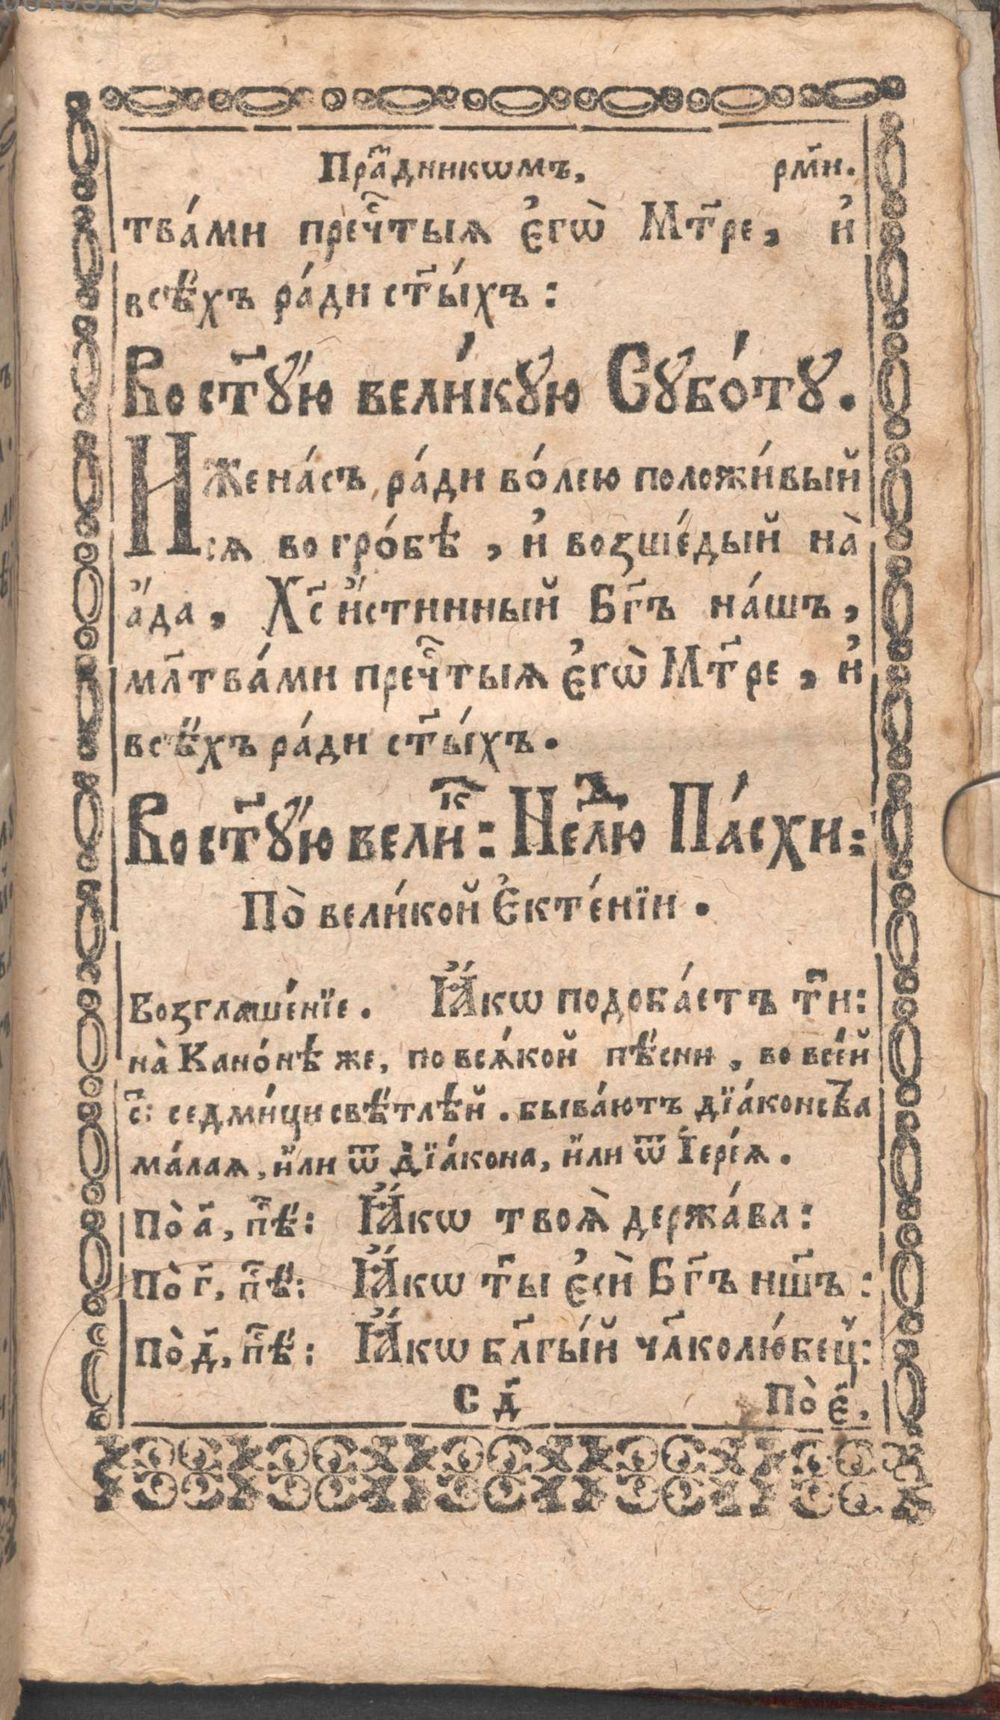 Пра́здникѡмъ, рм҃и.
тва́ми преч҇тыѧ є҆гѡ̀ Мт҃ре, и҆
всѣ́хъ ра́ди ст҃ы́хъ:
Во ст҃у́ю вели́кую Субо́ту.
Иже на́съ ра́ди во́лею положи́вый
сѧ во гро́бѣ, и҆ возше́дый на̀
а҆́да, Хс҃ и҆́стинный Бг҃ъ на́шъ,
мл҃тва́ми преч҇тыѧ є҆гѡ̀ Мт҃ре, и҆
всѣ́хъ ра́ди ст҃ы́хъ.
Во ст҃у́ю вели́к: Недⷧ҇ю Па́схи:
По̀ вели́кой Є҆кте́нїи.
Возглаше́нїе. Ꙗ҆́кѡ подоба́етъ ти҃:
на̀ Кано́нѣ же, по всѧ́кой пѣ́сни, во все́й
с҃: седми́ци свѣ́тлѣй. быва́ютъ дїа́конства
ма́лаѧ, и҆лѝ ѿ Дїа́кона, и҆лѝ ѿ І҆ере́ѧ.
По̀ а҃, пѣ҇: Ꙗ҆́кѡ твоѧ̀ держа́ва:
По̀ г҃, пѣ҇: Ꙗ҆́кѡ ты҃ є҆сѝ Бг҃ъ нш҃ъ:
По̀ д҃, пѣ҇: Ꙗ҆́кѡ бл҃гі́й чл҃колю́бец:
С д҃ По̀ є҃,